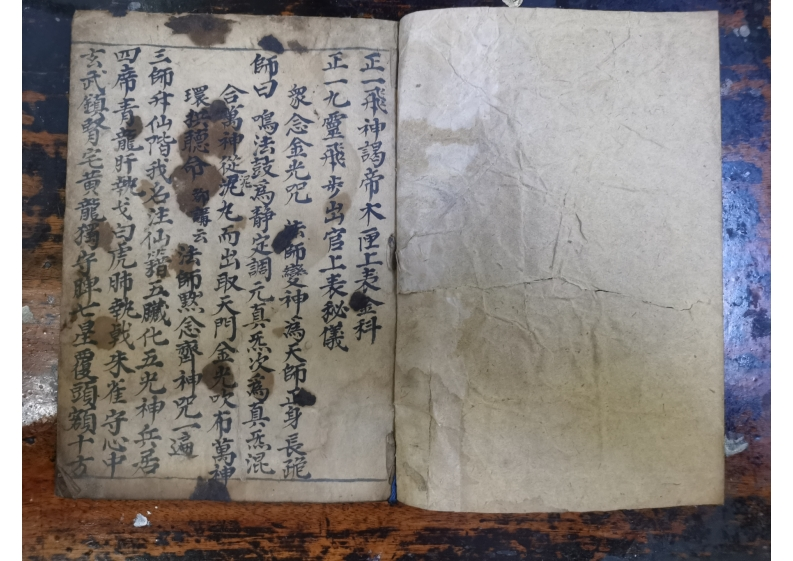 正一飛神謁帝木匣上表金科
正一九靈飛步出官上表秘儀
衆念金光咒 法師變神爲天師正身長跪
師曰 鳴法鼓爲静定調元真炁次爲真炁混
合萬神從泥丸而出取天門金光吹布萬神
環拱聽令 法師黙念齊神咒一遍
三師升仙階我名注仙籍五臟化五光神兵居
四席青龍肝執戈白虎肺執戟朱雀守心中
玄武鎮腎宅黄龍獨守脾七星覆頭額十方